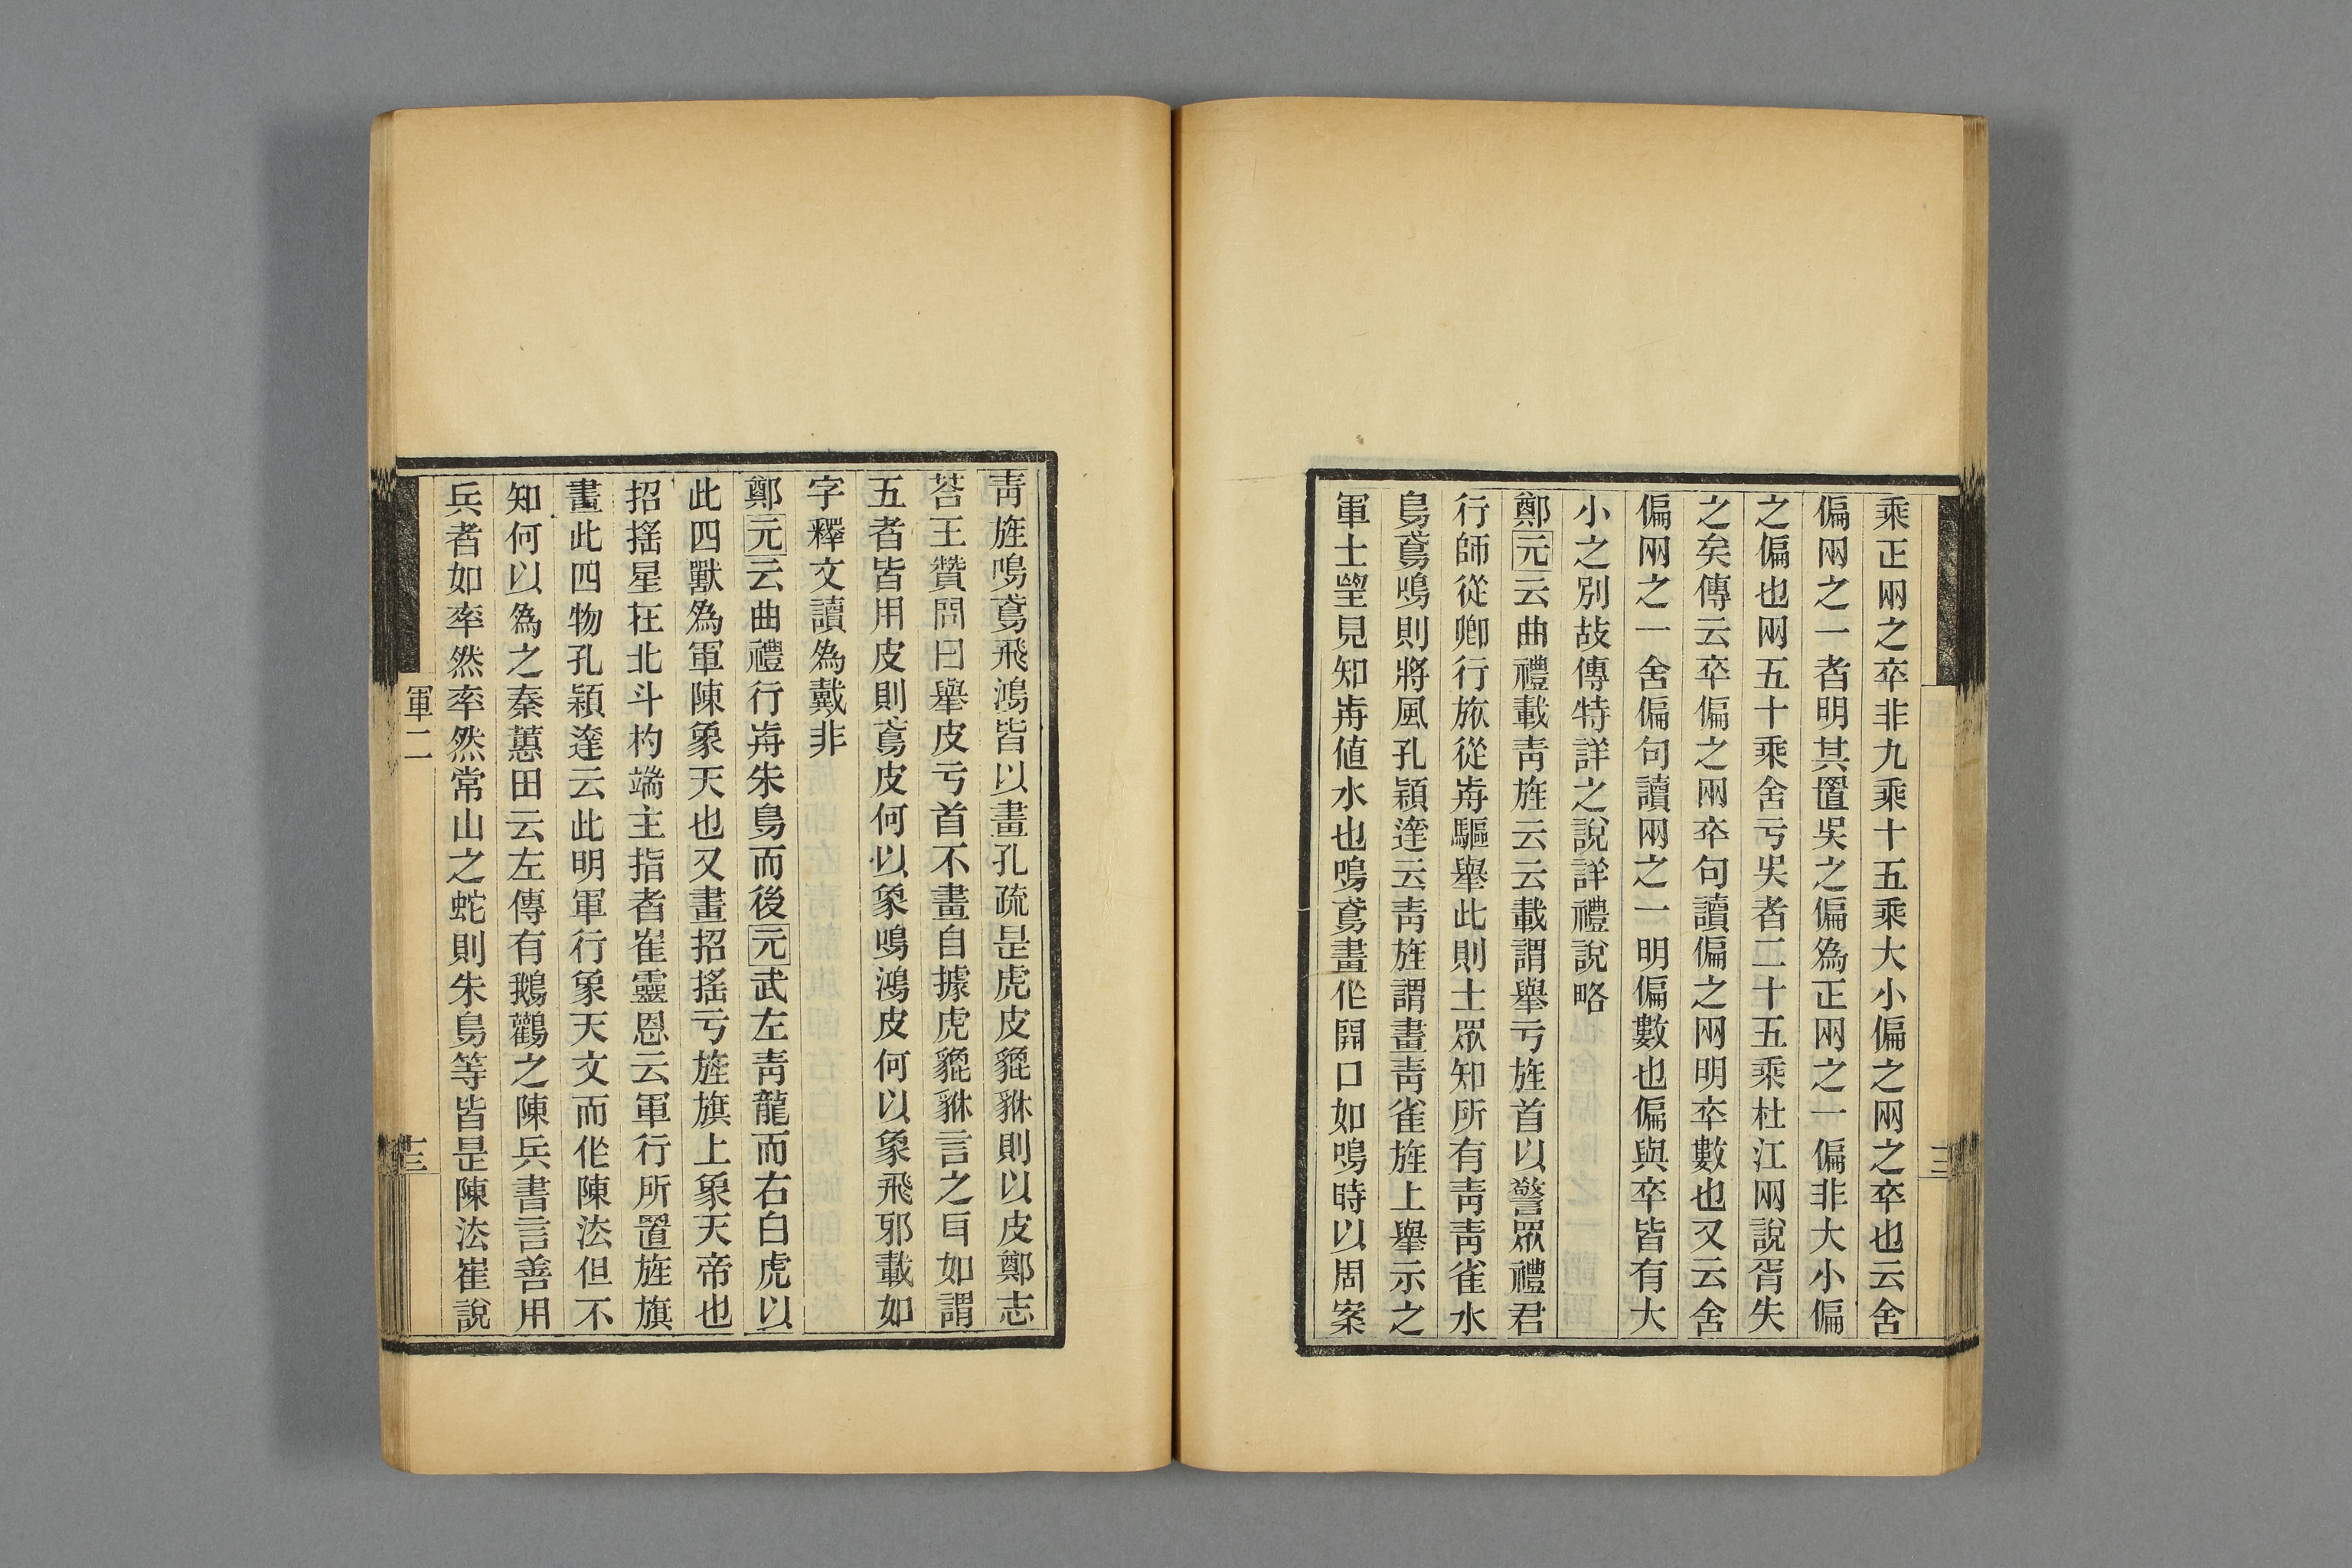 乘正兩之卒非九乘十五乘大小偏之兩之卒也云舍
偏兩之一者明其置吳之偏為正兩之一偏非大小偏
之偏也兩五十乘舍亏吳者二十五乘杜江兩說胥失
之矣傳云卒偏之兩卒句讀偏之兩明卒數也又云舍
偏兩之一舍偏句讀兩之一明偏數也偏與卒皆有大
小之別故傳特詳之說詳禮說略
鄭元云曲禮載靑旌云云載謂舉亏旌首以警眾禮君
行師從卿行旅從歬驅舉此則士眾知所有靑靑雀水
鳥鳶鳴則將風孔穎達云靑旌謂畫靑雀旌上舉示之
軍士朢見知歬値水也鳴鳶畫作開口如鳴時以周案
靑旌鳴鳶飛鴻皆以畫孔疏是虎皮貔貅則以皮鄭志
荅王贊問曰舉皮亏首不畫自據虎貔貅言之耳如謂
五者皆用皮則鳶皮何以象鳴鴻皮何以象飛邪載如
字釋文讀為戴非
鄭元云曲禮行歬朱鳥而後元武左靑龍而右白虎以
此四獸為軍陳象天也又畫招搖亏旌旗上象天帝也
招搖星在北斗杓端主指者崔靈恩云軍行所置旌旗
畫此四物孔穎達云此明軍行象天文而作陳法但不
知何以為之秦蕙田云左傳有鵝鸛之陳兵書言善用
兵者如率然率然常山之蛇則朱鳥等皆是陳法崔說
軍二
十三